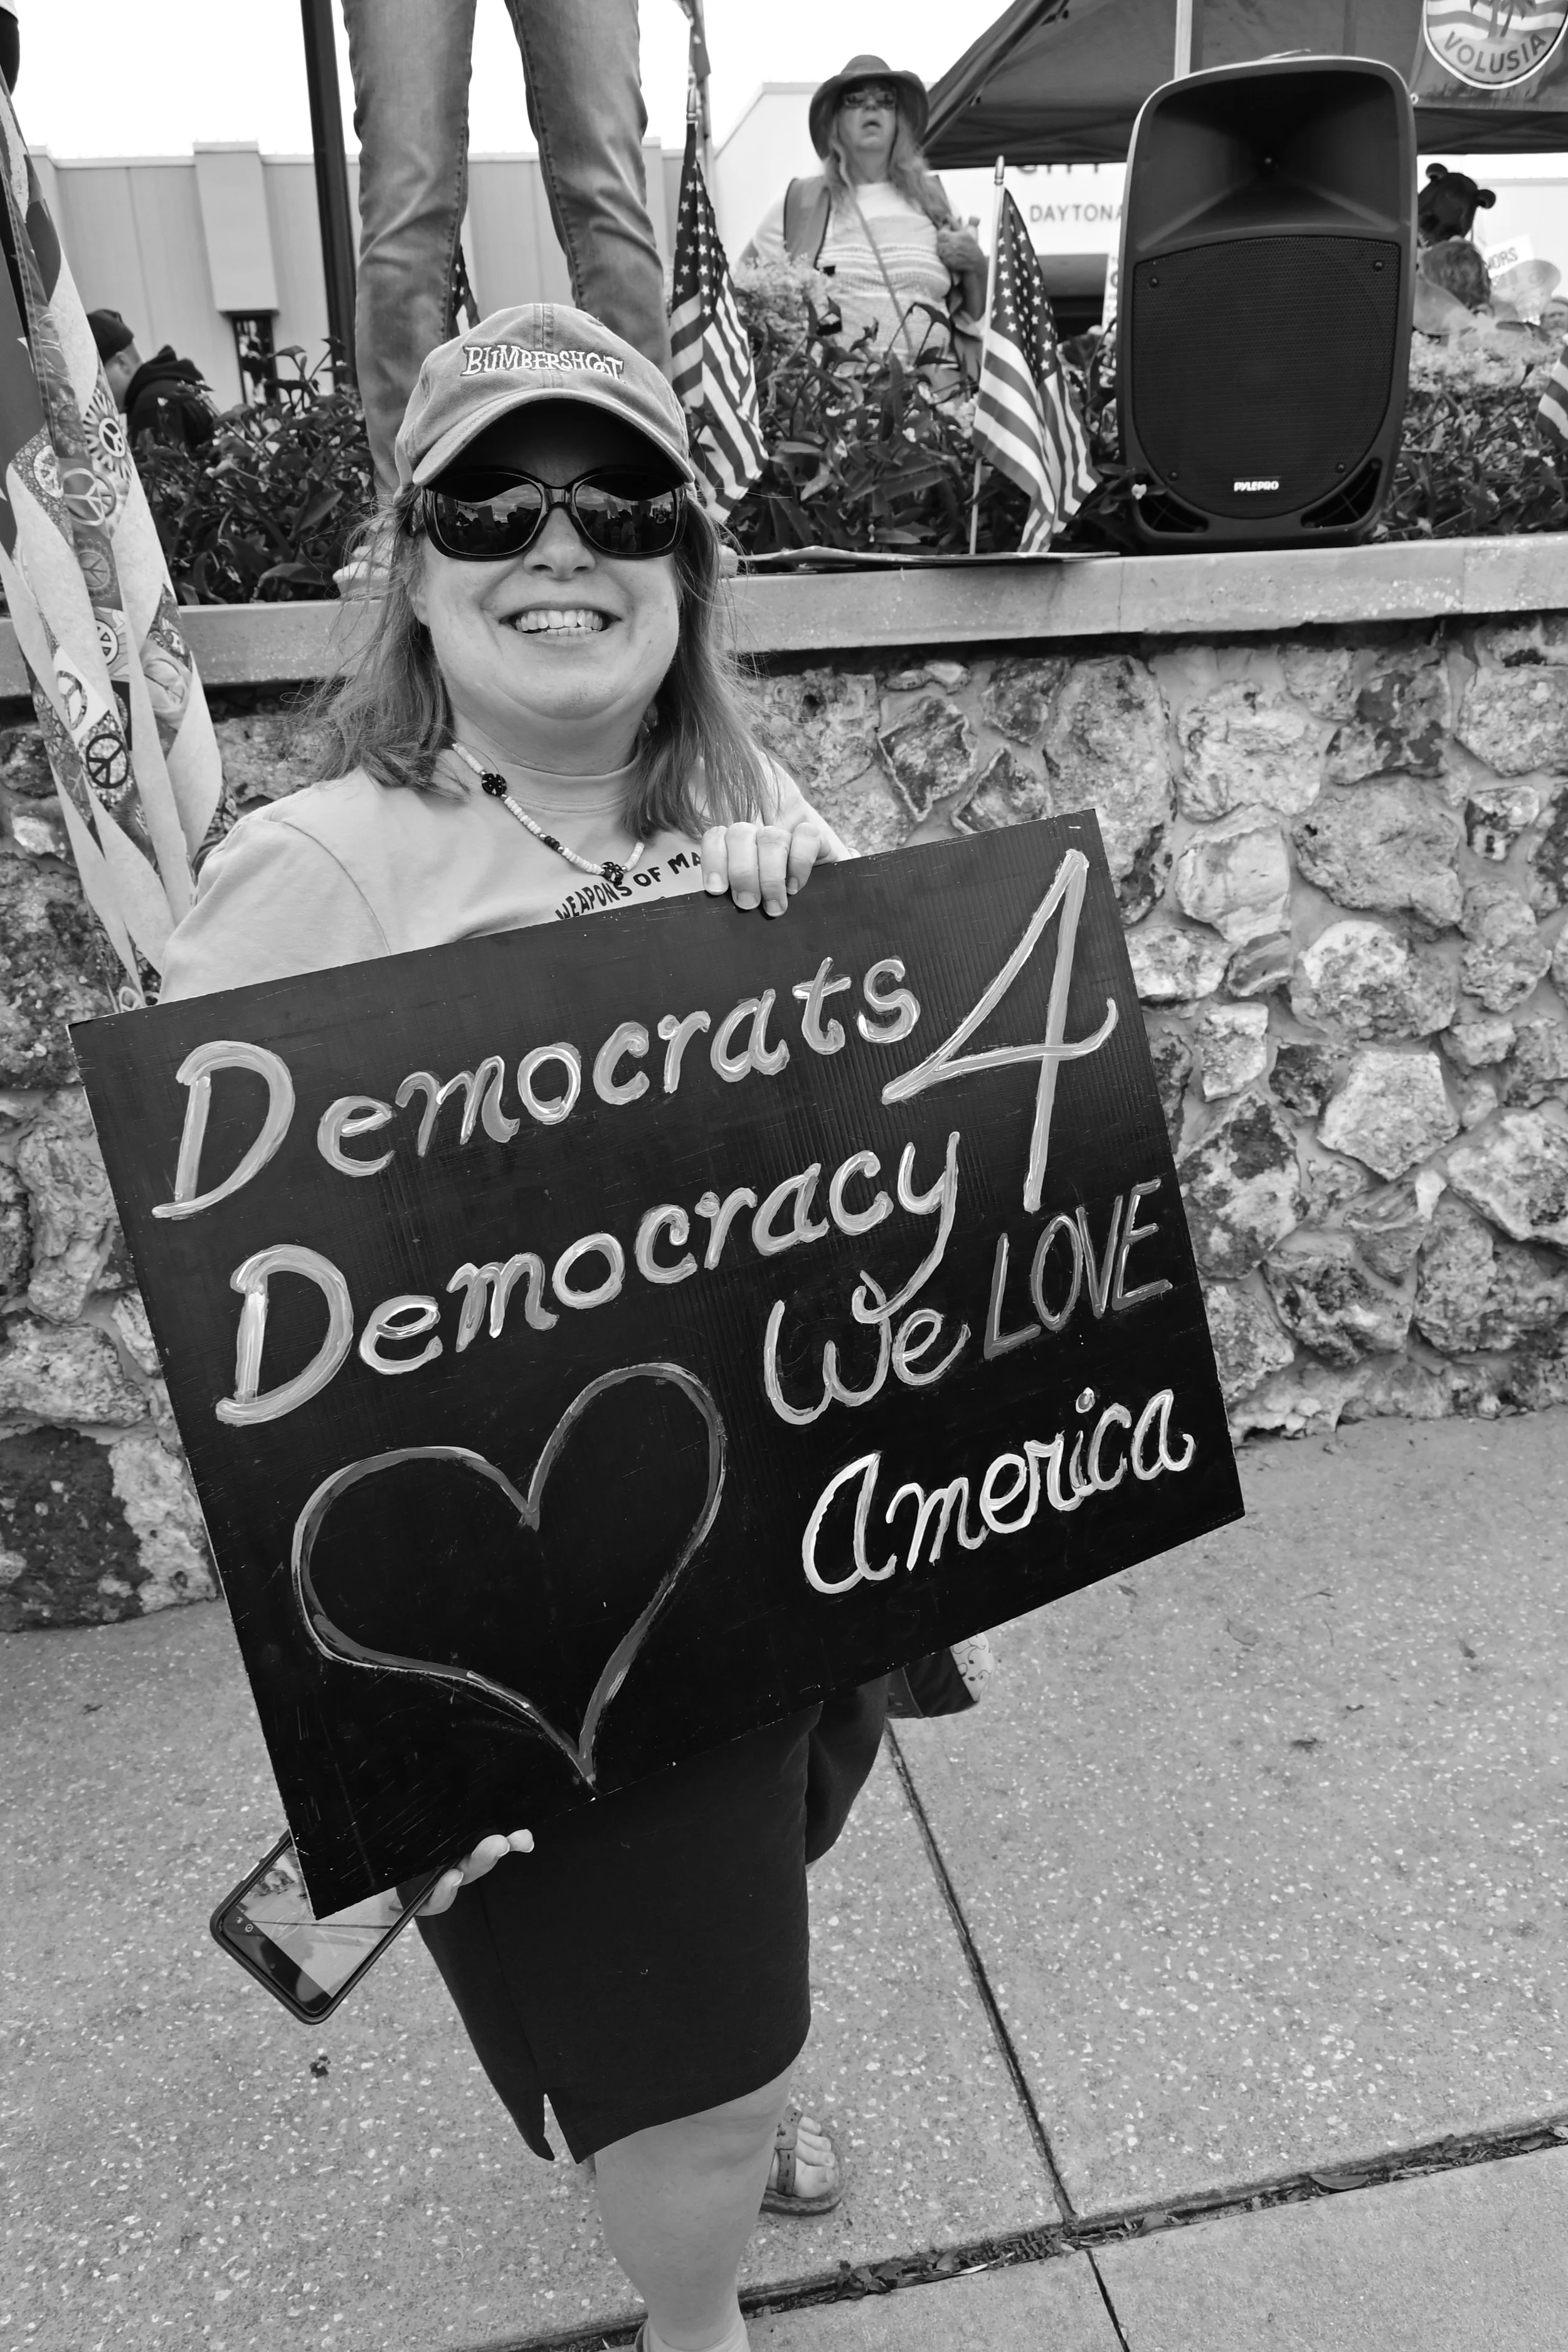 VOLUSIA
DAYTONA
BUMBERSHOOT
PYLEPRO
WEAPONS OF MA
Democrats 4
Democracy
We LOVE
America